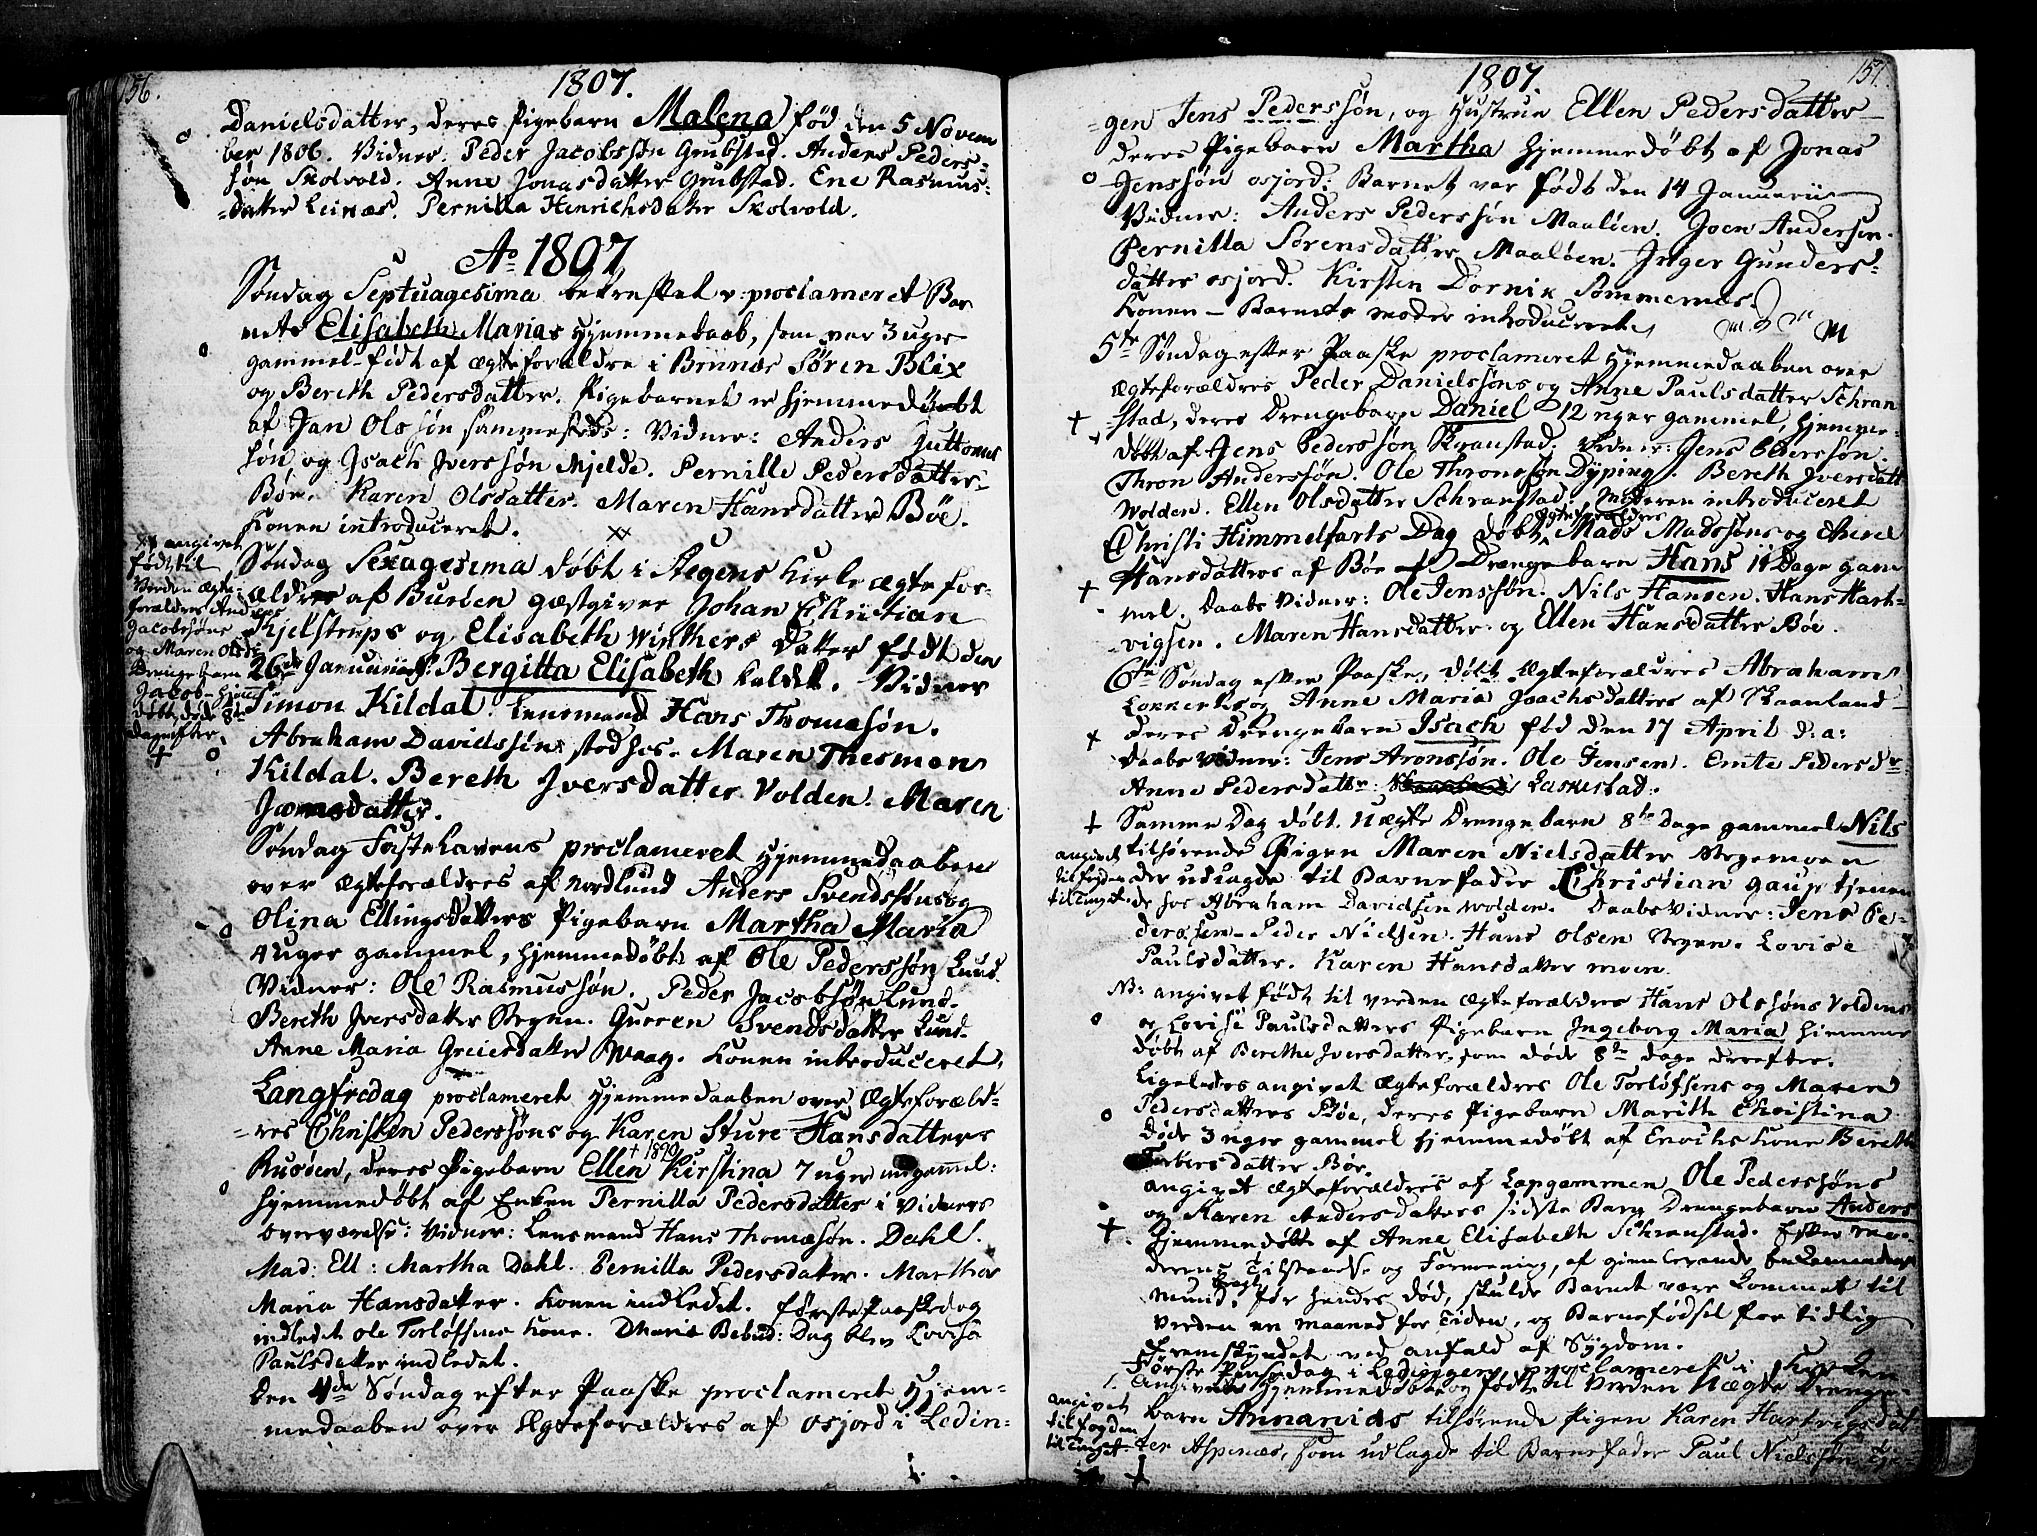 156.
1807.
Danielsdatter, deres Pigebarn Malena fød den 5 Novem
ber 1806. Vidner: Peder Jacobssøn Grubstad. Anders Peders=
søn Skolvold. Anne Jonasdatter Grubstad. Ene Rasmus=
=datter Leinæs. Pernilla Henrichsdatter Skolvold.
Ao 1807
Søndag Septuagesima bekræftet v: proclameret Bar
nets Elisabeth Marias Hjemmedaab, som var 3 uger
gammel - født af Ægteforældre i Brunæs Søren Blix
og Bereth Pedersdatter. Pigebarnet er hjemmedøbt
af Jan Olssøn sammesteds: Vidner: Anders Guttorms
søn og Isach Iverssøn Mjelde. Pernille Pedersdatter
Bøe. Karen Olsdatter. Maren Hansdatter Bøe.
Konen introduceret.
Søndag Sexagesima døbt i Stegens Kirke ægtefor=
ældre af Burøen gæstgiver Johan Christian
Thjelstrups og Elisabeth Winthers Datter født den
26de Januarii: Bergitta Elisabeth kaldet. Vidner
Simon Kildal. Lensmand Hans Thomæsøn.
Abraham Davidssøn stod hos. Maren Thesmon
Kildal. Bereth Iversdatter Volden. Maren
Joensdatter.
angivet
født til
Verden ægte
forældres Anders
Jacobsøns
og Maren Olsdr
Drengebarn
Jacob - hjemme
døbt, døde 8te
dagen efter.
Søndag Fastelavens proclameret Hjemmedaaben
over Ægteforældres af Nordlund Anders Svendssøns og
Olina Ellingsdatters Pigebarn Martha Maria
4 uger gammel, hjemmedøbt af Ole Pederssøn Lund.
Vidner: Ole Rasmussøn. Peder Jacobsøn Lund.
Bereth Iversdatter Stegen. Guren Svendsdatter Lund.
Anne Maria Greiersdatter Waag. Konen introduceret.
Langfredag proclameret Hjemmedaaben over Ægteforæld=
=res Christen Pederssøns og Karen Sture Hansdatters
+ 1890
Rusøen, deres Pigebarn Ellen Kirstina 7 uger ungamel:
hjemmedøbt af Enken Pernilla Pedersdatter i Vidners
overværelse: Vidner: Lensmand Hans Thomæsøn. Dahl.
Mad: Ell: Martha Dahl. Pernilla Pedersdatter. Martha
Maria Hansdatter. Konen indledet. Første Paaskedag
indledet Ole Torløfsens Kone. Mariæ Bebud: Dag blev Lovisa
Paulsdatter indledet.
Den 4de Søndag efter Paaske proclameret Hjem=
medaaben over Ægteforældres af Osjord i Ledin=
157.
1807.
=gen Jens Pederssøn, og Hustrue Ellen Pedersdatter
deres Pigebarn Martha hjemmedøbt af Jonas
Jenssøn Osjord: Barnet var født den 14 Januarii
Vidner: Anders Pederssøn Maaløen. Joen Andersen.
Pernilla Sørensdatter Maaløen. Inger Gunders=
datter Osjord. Kirsten Dornix Sommernæs.
Konen - Barnets moder introduceret.
5te Søndag efter Paaske proclameret Hjemmedaaben over
Ægteforældres Peder Danielssøns og Anne Paulsdatter Schran
stad, deres Drengebarn Daniel 12 uger gammel, hjemme=
døbt af Jens Pederssøn Skranstad. Vidner: Jens Pederssøn.
Thron Anderssøn. Ole Thronssøn Dyping. Bereth Iversdatt
Wolden. Ellen Olsdatter Schranstad. Moderen introduceret
Christi Himmelfarts Dag døbt ægteforældres Mads Madssøns og
Hansdatters af Bøe Drengebarn Hans 11 Dage gam
mel. Daabs Vidner: Ole Jenssøn. Nils Hansen. Hans Hart=
vigsen. Maren Hansdatter og Ellen Hansdatter Bøe.
6te Søndag efter Paaske, døbt Ægteforældres Abraham
og Anne Maria Joachsdatters af Skaanland
deres Drengebarn Isach fød den 17 April d: a:
Daabs Vidner: Jens Aronssøn. Ole Jensen. Emte Pedersdr
Anne Pedersdatter Laskestad.
Samme Dag døbt Uægte Drengebarn 8te dage gammel Nils
tilhørende Pigen Maren Nielsdatter Stegemoen
der udlagde til Barnefader Christian Gaup tjenen
de hos Abraham Davidsen Wolden. Daabs Vidner: Jens Pe=
dersen. Peder Nielsen. Hans Olsen Stegen. Lovise
Paulsdatter. Karen Hansdatter Moen.
angivet
til fogden
til Tinget.
NB: angivet født til verden ægteforældres Hans Olssøns Voldens
og Lovise Paulsdatters Pigebarn Ingeborg Maria hjemme
døbt af Berethe Iversdatter, som døde 8te dage derefter.
Ligeledes angivet Ægteforældres Ole Torløfsens og Maren
Pedersdatters Bøe, deres Pigebarn Marith Christina
døde 3 uger gammel hjemmedøbt af Enochs Kone Bereth
datter Bøe.
angivet ægteforældres af Lapgammen Ole Pederssøns
og Karen Andersdatters sidste Barn Drengebarn Anders
hjemmedøbt af Anne Elisabeth Schranstad. Efter mo=
derens Tilstaaelse og Formening, af gienlevende
mund, før hendes død, skulde Barnet være kommet til
Verden en maaned for Tiden, og Barnefødsel for tidlig
fremskyndet ved anfald af Sygdom.
Første Pinsedag i Ledingen proclameret i Kirken
angivet hjemmedøbt og født til Verden Uægte Drenge=
barn Annanias tilhørende Pigen Karen Hartvigsdat
ter Aspenæs, som udlagde til Barnefader Paul Nielssøn tje=
angivet
til fogden
til Tinget.